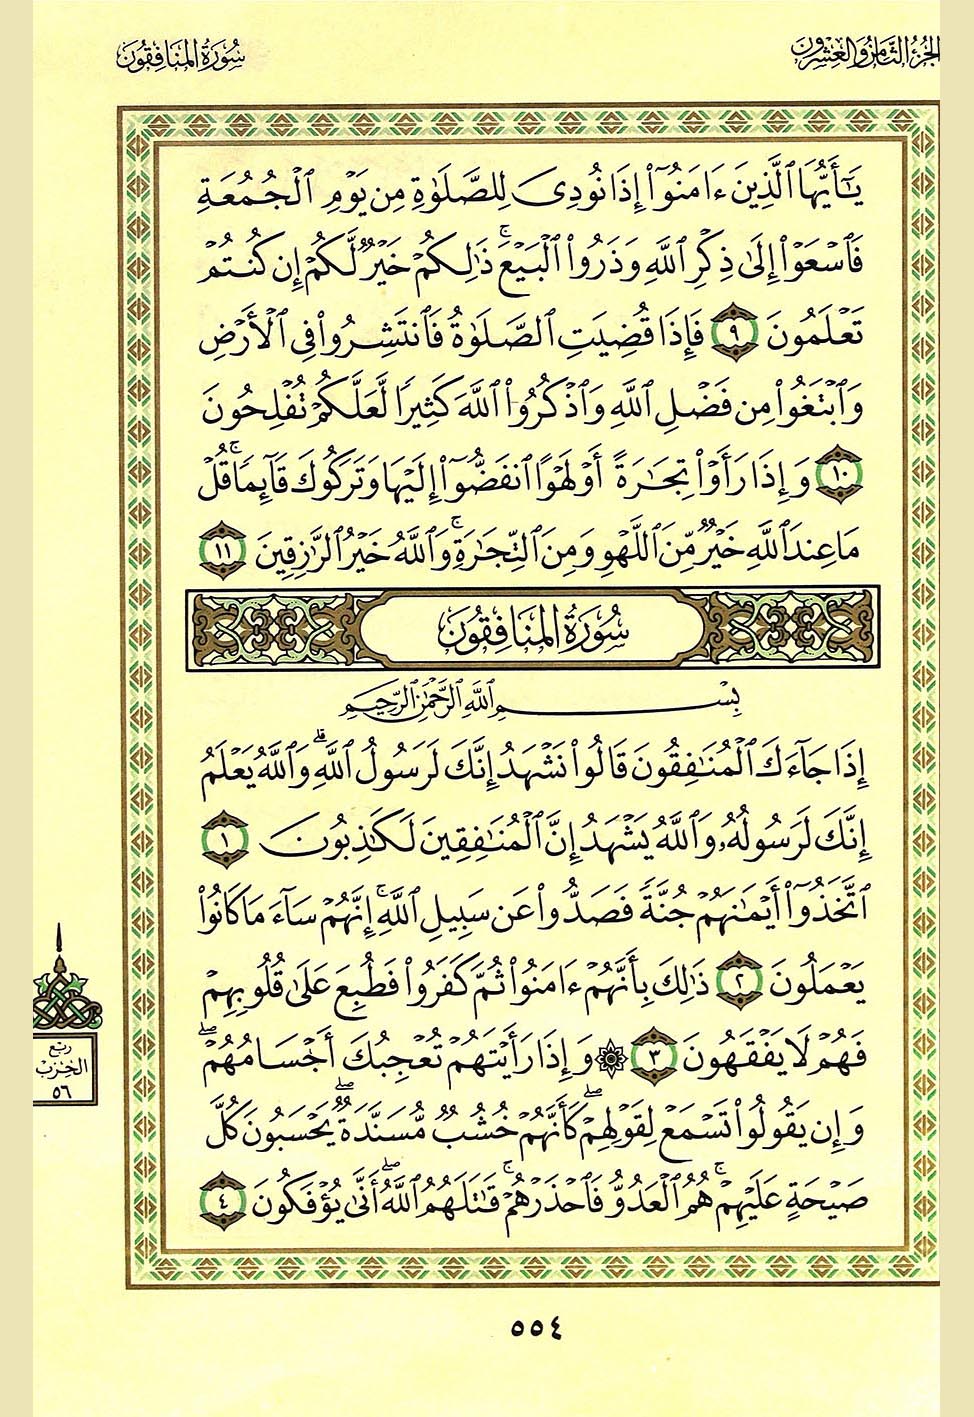 الجزء الثامن والعشرون
سورة المنافقون
يَٰٓأَيُّهَا ٱلَّذِينَ ءَامَنُوٓا۟ إِذَا نُودِىَ لِلصَّلَوٰةِ مِن يَوْمِ ٱلْجُمُعَةِ
فَٱسْعَوْا۟ إِلَىٰ ذِكْرِ ٱللَّهِ وَذَرُوا۟ ٱلْبَيْعَ ۚ ذَٰلِكُمْ خَيْرٌ لَّكُمْ إِن كُنتُمْ
تَعْلَمُونَ ٩ فَإِذَا قُضِيَتِ ٱلصَّلَوٰةُ فَٱنتَشِرُوا۟ فِى ٱلْأَرْضِ
وَٱبْتَغُوا۟ مِن فَضْلِ ٱللَّهِ وَٱذْكُرُوا۟ ٱللَّهَ كَثِيرًا لَّعَلَّكُمْ تُفْلِحُونَ
١٠ وَإِذَا رَأَوْا۟ تِجَٰرَةً أَوْ لَهْوًا ٱنفَضُّوٓا۟ إِلَيْهَا وَتَرَكُوكَ قَآئِمًا ۚ قُلْ
مَا عِندَ ٱللَّهِ خَيْرٌ مِّنَ ٱللَّهْوِ وَمِنَ ٱلتِّجَٰرَةِ ۚ وَٱللَّهُ خَيْرُ ٱلرَّٰزِقِينَ ١١
سُورَةُ المنَافِقُونَ
بِسْمِ ٱللَّهِ ٱلرَّحْمَٰنِ ٱلرَّحِيمِ
إِذَا جَآءَكَ ٱلْمُنَٰفِقُونَ قَالُوا۟ نَشْهَدُ إِنَّكَ لَرَسُولُ ٱللَّهِ ۗ وَٱللَّهُ يَعْلَمُ
إِنَّكَ لَرَسُولُهُۥ وَٱللَّهُ يَشْهَدُ إِنَّ ٱلْمُنَٰفِقِينَ لَكَٰذِبُونَ ١
ٱتَّخَذُوٓا۟ أَيْمَٰنَهُمْ جُنَّةً فَصَدُّوا۟ عَن سَبِيلِ ٱللَّهِ ۚ إِنَّهُمْ سَآءَ مَا كَانُوا۟
يَعْمَلُونَ ٢ ذَٰلِكَ بِأَنَّهُمْ ءَامَنُوا۟ ثُمَّ كَفَرُوا۟ فَطُبِعَ عَلَىٰ قُلُوبِهِمْ
فَهُمْ لَا يَفْقَهُونَ ٣ ۞ وَإِذَا رَأَيْتَهُمْ تُعْجِبُكَ أَجْسَامُهُمْ ۖ
وَإِن يَقُولُوا۟ تَسْمَعْ لِقَوْلِهِمْ ۖ كَأَنَّهُمْ خُشُبٌ مُّسَنَّدَةٌ ۖ يَحْسَبُونَ كُلَّ
صَيْحَةٍ عَلَيْهِمْ ۚ هُمُ ٱلْعَدُوُّ فَٱحْذَرْهُمْ ۚ قَٰتَلَهُمُ ٱللَّهُ ۖ أَنَّىٰ يُؤْفَكُونَ ٤
ربع
الحزب
٥٦
٥٥٤